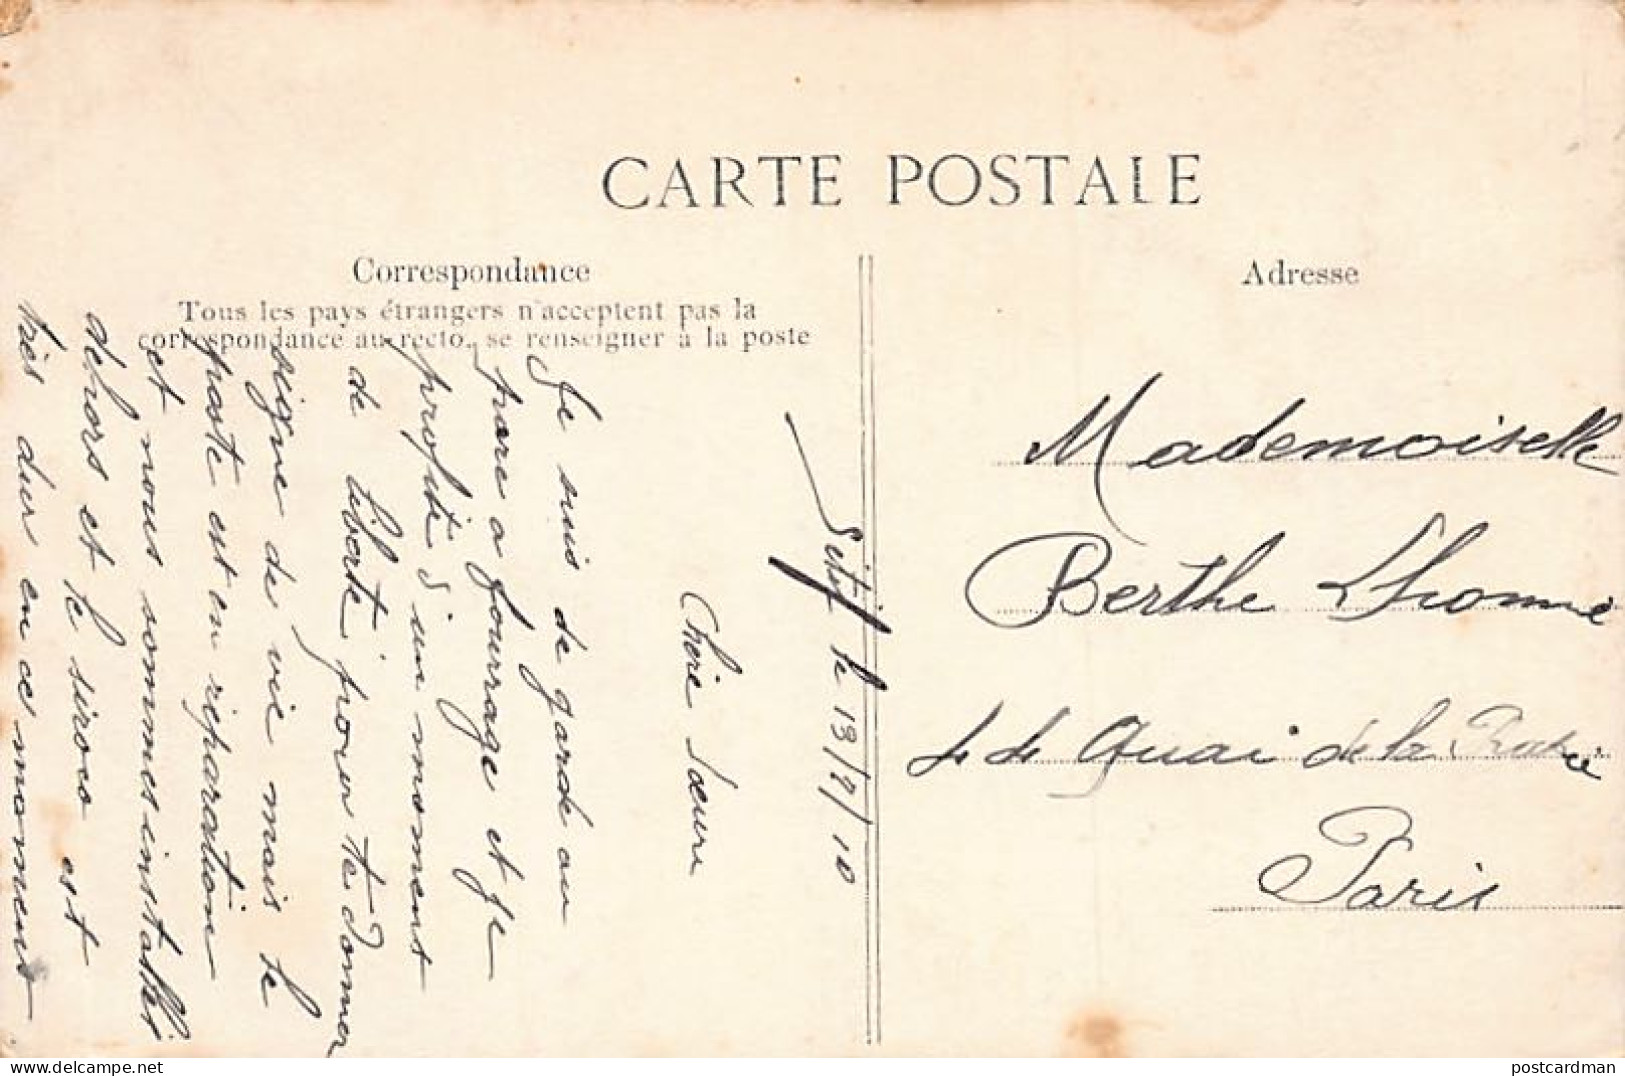 CARTE POSTALE
Correspondance
Tous les pays étrangers n'acceptent pas la
correspondance au recto, se renseigner à la poste
Adresse
le 13/7/10
Chère Sœur
Je suis de garde au
parc a fourrage et je
profite d'un moment
de liberté pour te donner
signe de vie mais le
poste est en réparation
et nous sommes installés
dehors et le siroco est
très dur en ce moment
Mademoiselle
Berthe Lhomme
Quai de la
Paris
postcardman